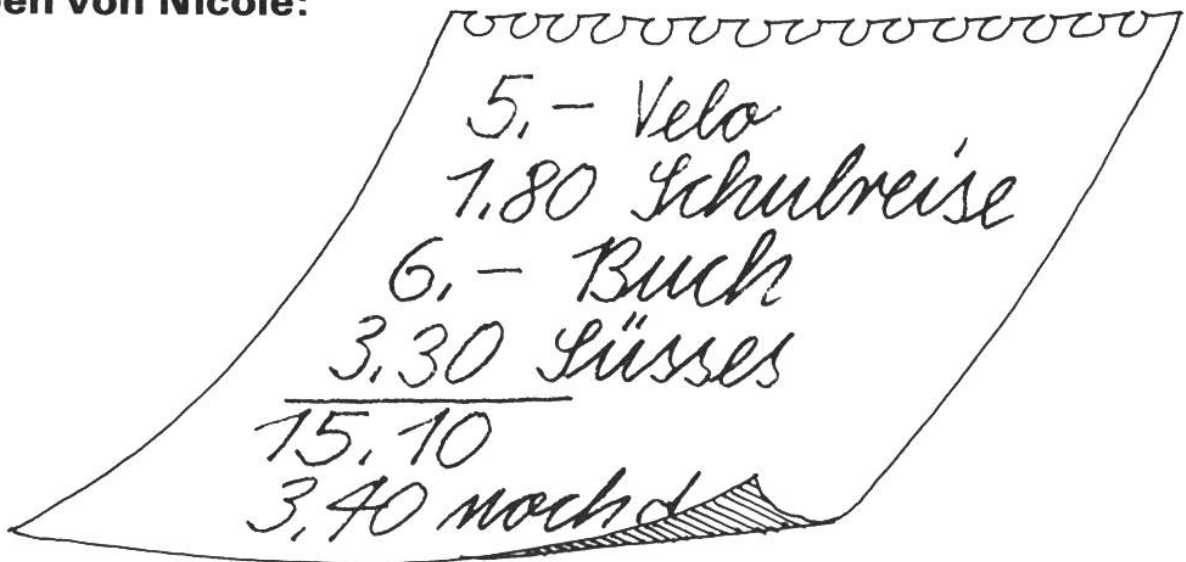 von Nicole:
5.– Velo
1.80 Schulreise
6.– Buch
3.30 Süsses
15.10
3.40 noch